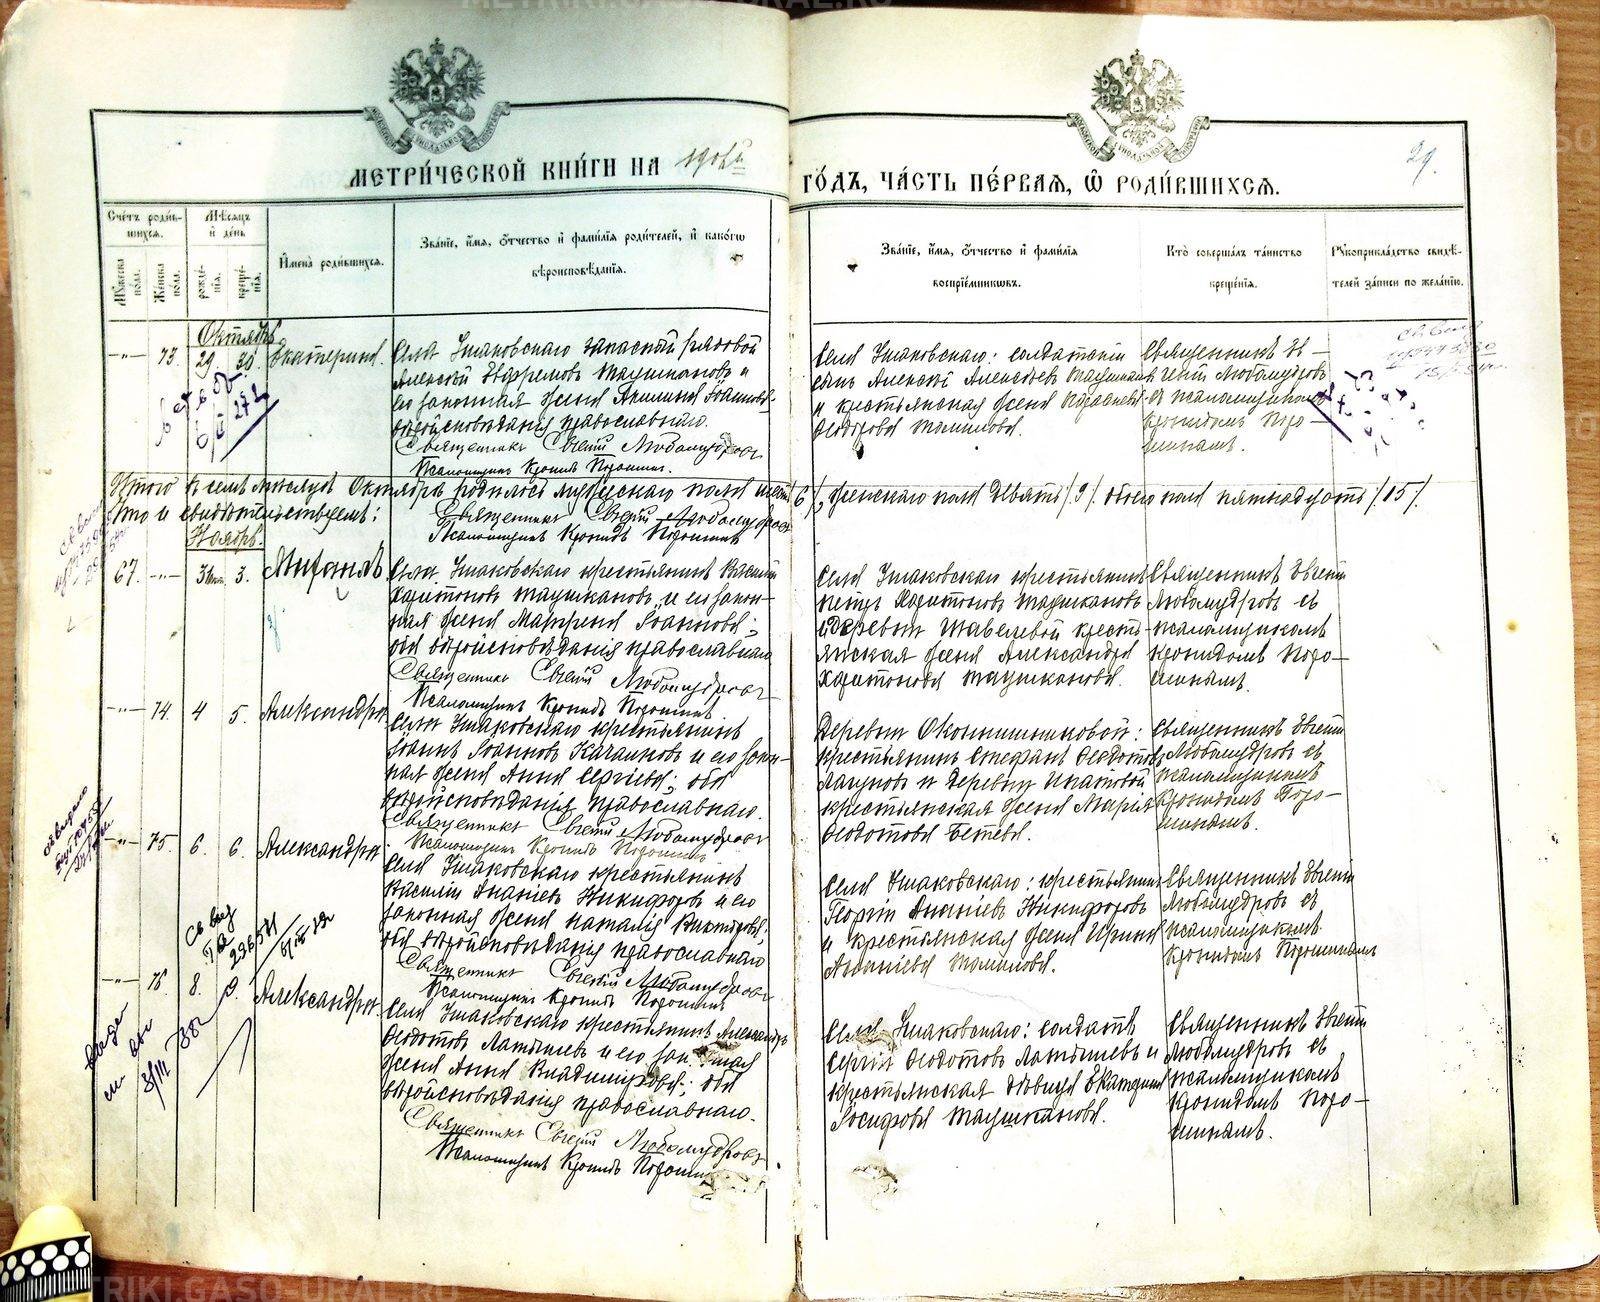 METRIKI.GASO-URAL.RU
МЕТРИ́ЧЕСКОЙ КНИ́ГИ НА
ГО́ДЪ, ЧА́СТЬ ПЕ́РВАЯ, Ѽ РОДИ́ВШИХСѦ.
29.
Сче́тъ роди́в-
шихсѧ.
Мѣ́сѧцъ
и҆ де́нь
Имена̀ роди́вшихсѧ.
Зва́нїе, и҆́мѧ, ѻ҆́тчество и҆ фами́лїѧ роди́телей, и҆ како́гѡ
вѣроисповѣ́данїѧ.
Зва́нїе, и҆́мѧ, ѻ҆́тчество и҆ фами́лїѧ
воспрїе́мникѡвъ.
Кто̀ соверша́лъ та́инство
креще́нїѧ.
Рꙋкоприкла́дство свидѣ́-
телей за́писи по жела́нїю.
Мꙋ́жеска
по́ла.
Же́нска
по́ла.
рожде́-
нїѧ.
креще́-
нїѧ.
Октябрь
73. 29 30. Екатерина.
Села Ушаковскаго запасный рядовой
Алексей Ефремовъ Таушкановъ и
его законная жена Акилина Іоаннова
вѣроисповѣданія православнаго.
Священникъ Евгеній Любомудровъ
Псаломщикъ Кронидъ Порошинъ.
Села Ушаковскаго: солдатскій
сынъ Алексей Алексѣевъ Таушкановъ
и крестьянская жена
Феодорова Томилова.
Священникъ Ев-
геній Любомудровъ
съ псаломщикомъ
Кронидомъ Поро-
шинымъ.
Итого въ семъ мѣсяцѣ Октябрѣ родилось мужескаго пола шесть /6/, женскаго пола девять /9/. обоего пола пятнадцать /15/.
Что и свидѣтельствуемъ:
Священникъ Евгеній Любомудровъ
Псаломщикъ Кронидъ Порошинъ
Ноябрь.
67. 3. Михаилъ
Села Ушаковскаго крестьянинъ Василій
Харитоновъ Таушкановъ и его закон-
ная жена Матрена Іоаннова;
оба вѣроисповѣданія православнаго
Священникъ Евгеній Любомудровъ
Псаломщикъ Кронидъ Порошинъ
Села Ушаковскаго крестьянинъ
Петръ Харитоновъ Таушкановъ
и деревни Шавелевой кресть-
янская жена Александра
Харитонова Таушканова.
Священникъ Евгеній
Любомудровъ съ
псаломщикомъ
Кронидомъ Поро-
шинымъ.
74. 4 5. Александра
Села Ушаковскаго крестьянинъ
Іоаннъ Іоанновъ Качалковъ и его закон-
ная жена Анна Сергіева; оба
вѣроисповѣданія православнаго.
Священникъ Евгеній Любомудровъ
Псаломщикъ Кронидъ Порошинъ
Деревни Оконишниковой:
крестьянинъ Стефанъ Феодотовъ
и деревни Ипатовой
крестьянская жена Марія
Феодотова Бетева.
Священникъ Евгеній
Любомудровъ съ
псаломщикомъ
Кронидомъ Поро-
шинымъ.
75. 6. 6. Александра.
Села Ушаковскаго крестьянинъ
Василій Ананіевъ Никифоровъ и его
законная жена Наталія Викторова;
оба вѣроисповѣданія православнаго
Священникъ Евгеній Любомудровъ
Псаломщикъ Кронидъ Порошинъ
Села Ушаковскаго: крестьянинъ
Георгій Ананіевъ Никифоровъ
и крестьянская жена Ирина
Ананіева Томилова.
Священникъ Евгеній
Любомудровъ съ
псаломщикомъ
Кронидомъ Порошинымъ
76. 8. 9. Александра.
Села Ушаковскаго крестьянинъ Александръ
Феодотовъ Латышевъ и его законная
жена Анна Владимірова; оба
вѣроисповѣданія православнаго.
Священникъ Евгеній Любомудровъ
Псаломщикъ Кронидъ Порошинъ
Села Ушаковскаго: солдатъ
Сергій Феодотовъ Латышевъ и
крестьянская дѣвица Екатерина
Іосифова Таушканова.
Священникъ Евгеній
Любомудровъ съ
псаломщикомъ
Кронидомъ Поро-
шинымъ.
METRIKI.GASO-URAL.RU